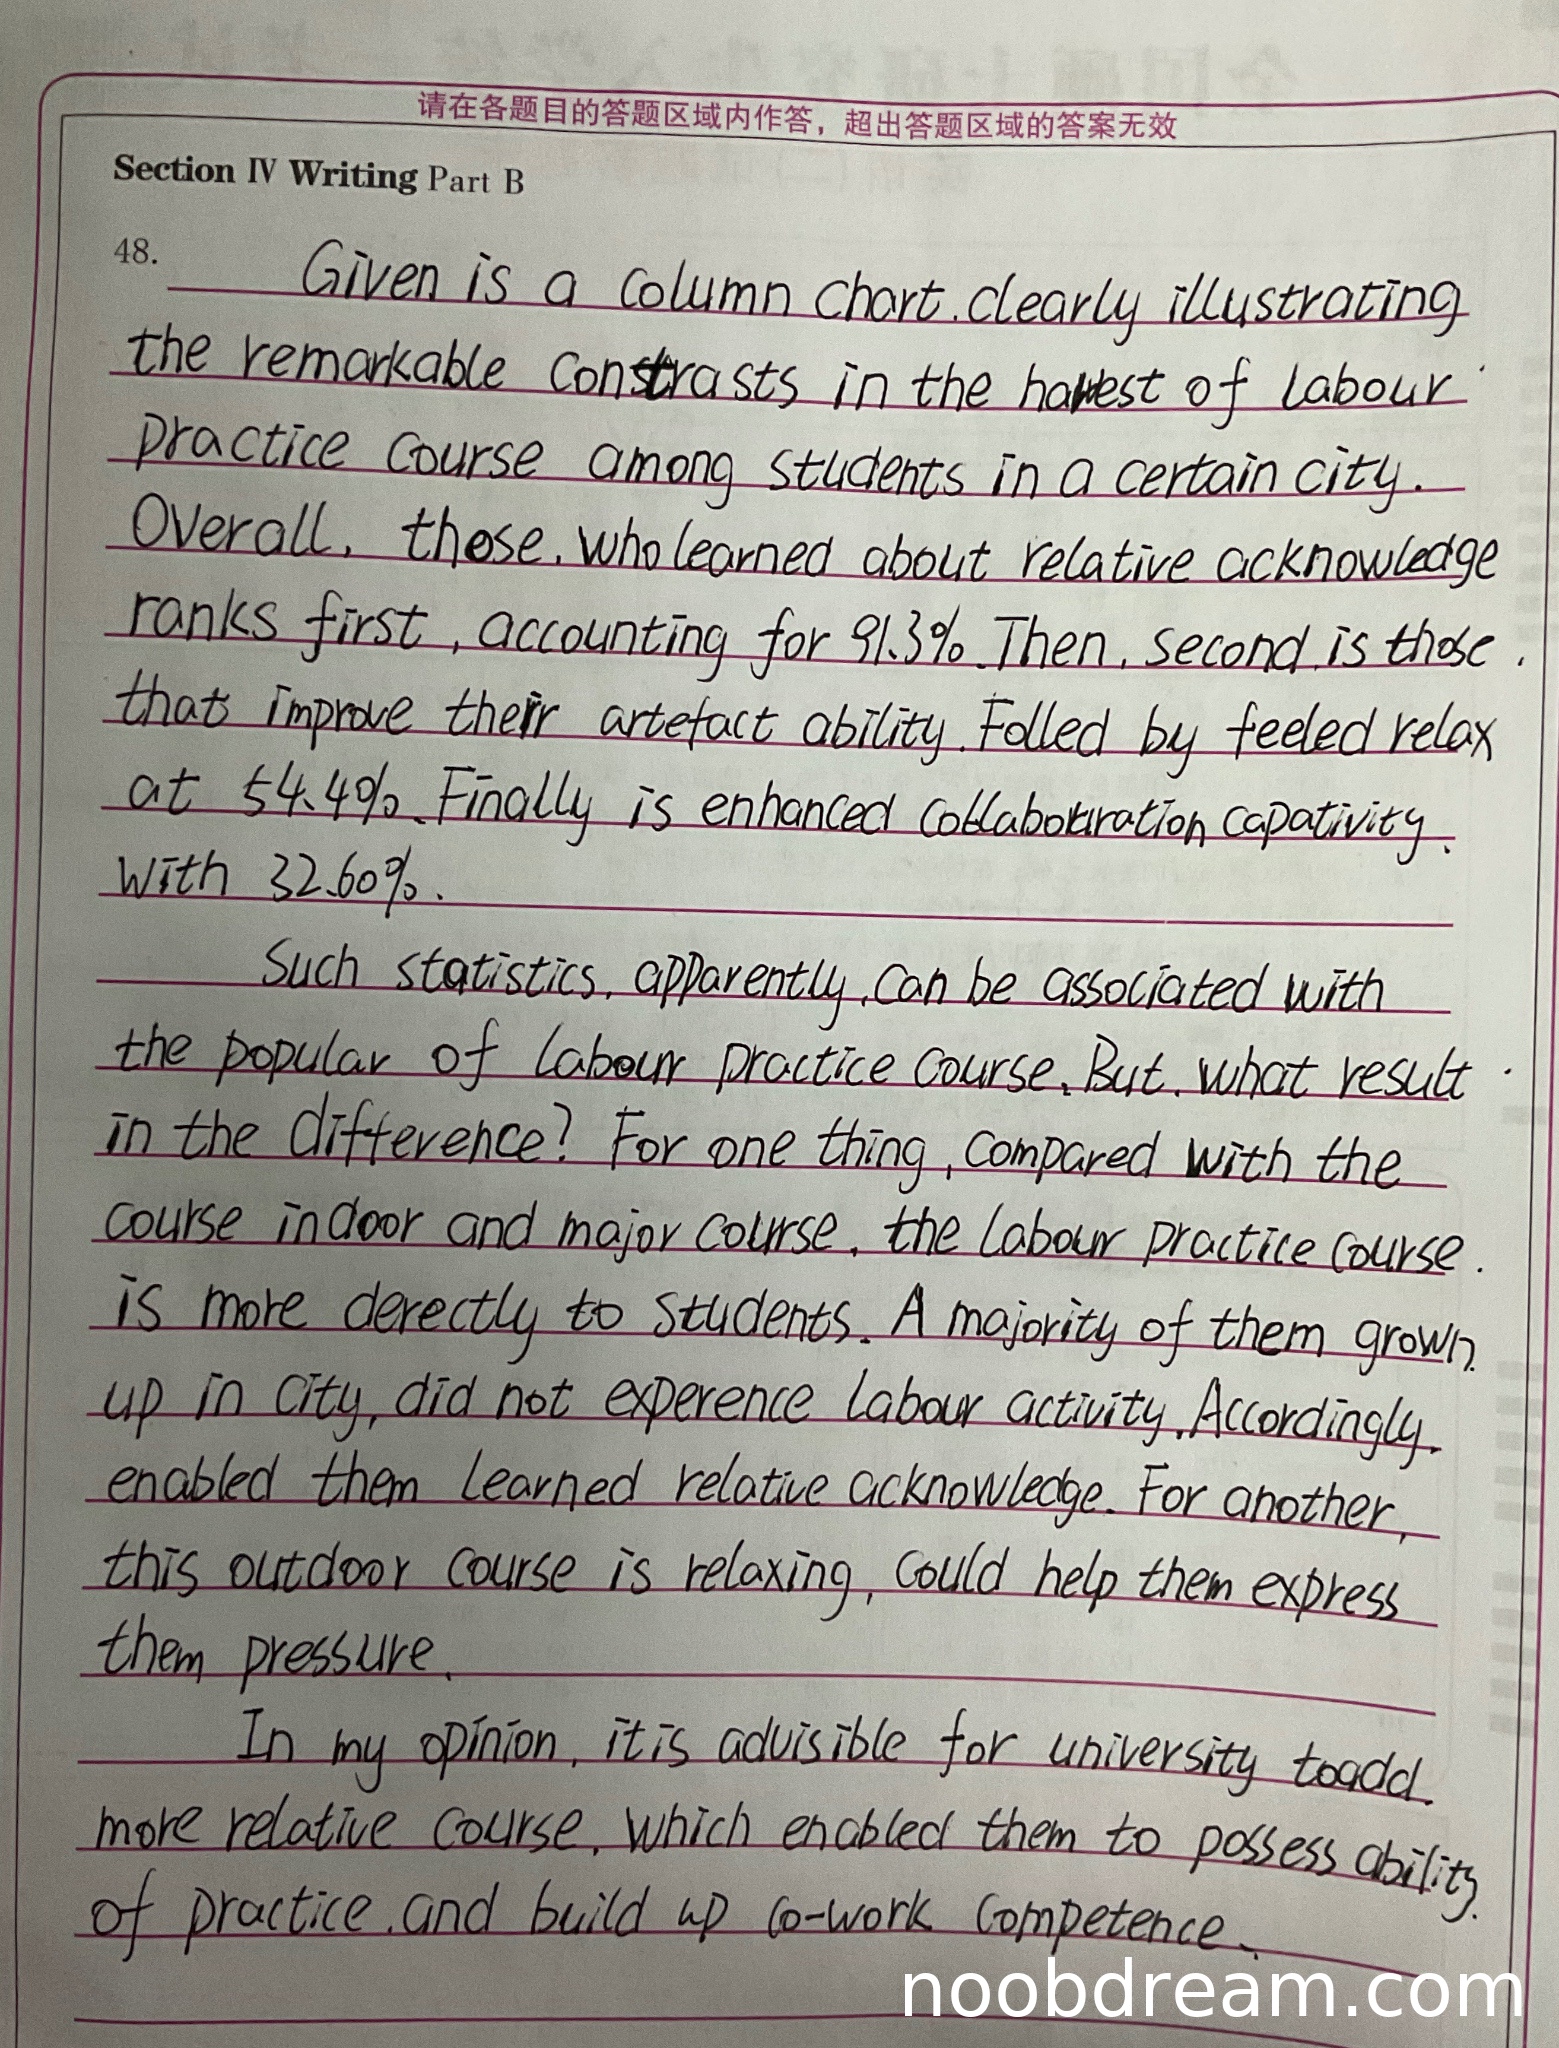 请在各题目的答题区域内作答，超出答题区域的答案无效
Section IV Writing Part B
48. Given is a column chart. clearly illustrating
the remarkable constrasts in the harvest of labour
practice course among students in a certain city.
Overall, those, who learned about relative acknowledge
ranks first, accounting for 91.3%. Then, second, is those
that improve their artefact ability. Folled by feeled relax
at 54.4%. Finally is enhanced capativity.
with 32.60%.
Such statistics, apparently, can be associated with
the popular of labour practice course. But, what result
in the difference? For one thing, compared with the
course indoor and major course, the labour practice course
is more derectly to students. A majority of them grown
up in city, did not experence labour activity. Accordingly,
enabled them learned relative acknowledge. For another,
this outdoor course is relaxing, could help them express
them pressure.
In my opinion, it is advisible for university to add
more relative course, which enabled them to possess ability
of practice, and build up co-work competence.
noobdream.com